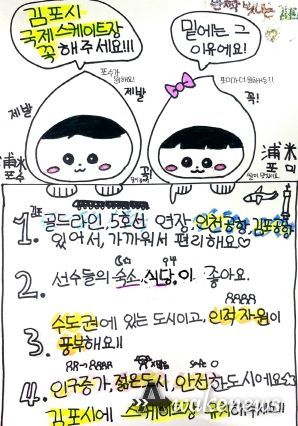 김포시
국제 스케이트장
꼭 해주세요!!!
밑에는 그
이유에요!
제발
제발
꼭!
浦米
포수
꼭!
浦米
포미
1. 김포 골드라인, 5호선 연장, 인천공항, 김포공항
있어서, 가까워서 편리해요♡
2. 선수들의 숙소, 식당, 이 좋아요.
수도권에 있는 도시이고, 인적자원이
3. 풍부해요!!
4. 인구증가, 젊은도시, 안전한 도시에요
김포시에 스케이트장 유치해주세요!!!
Asakenews